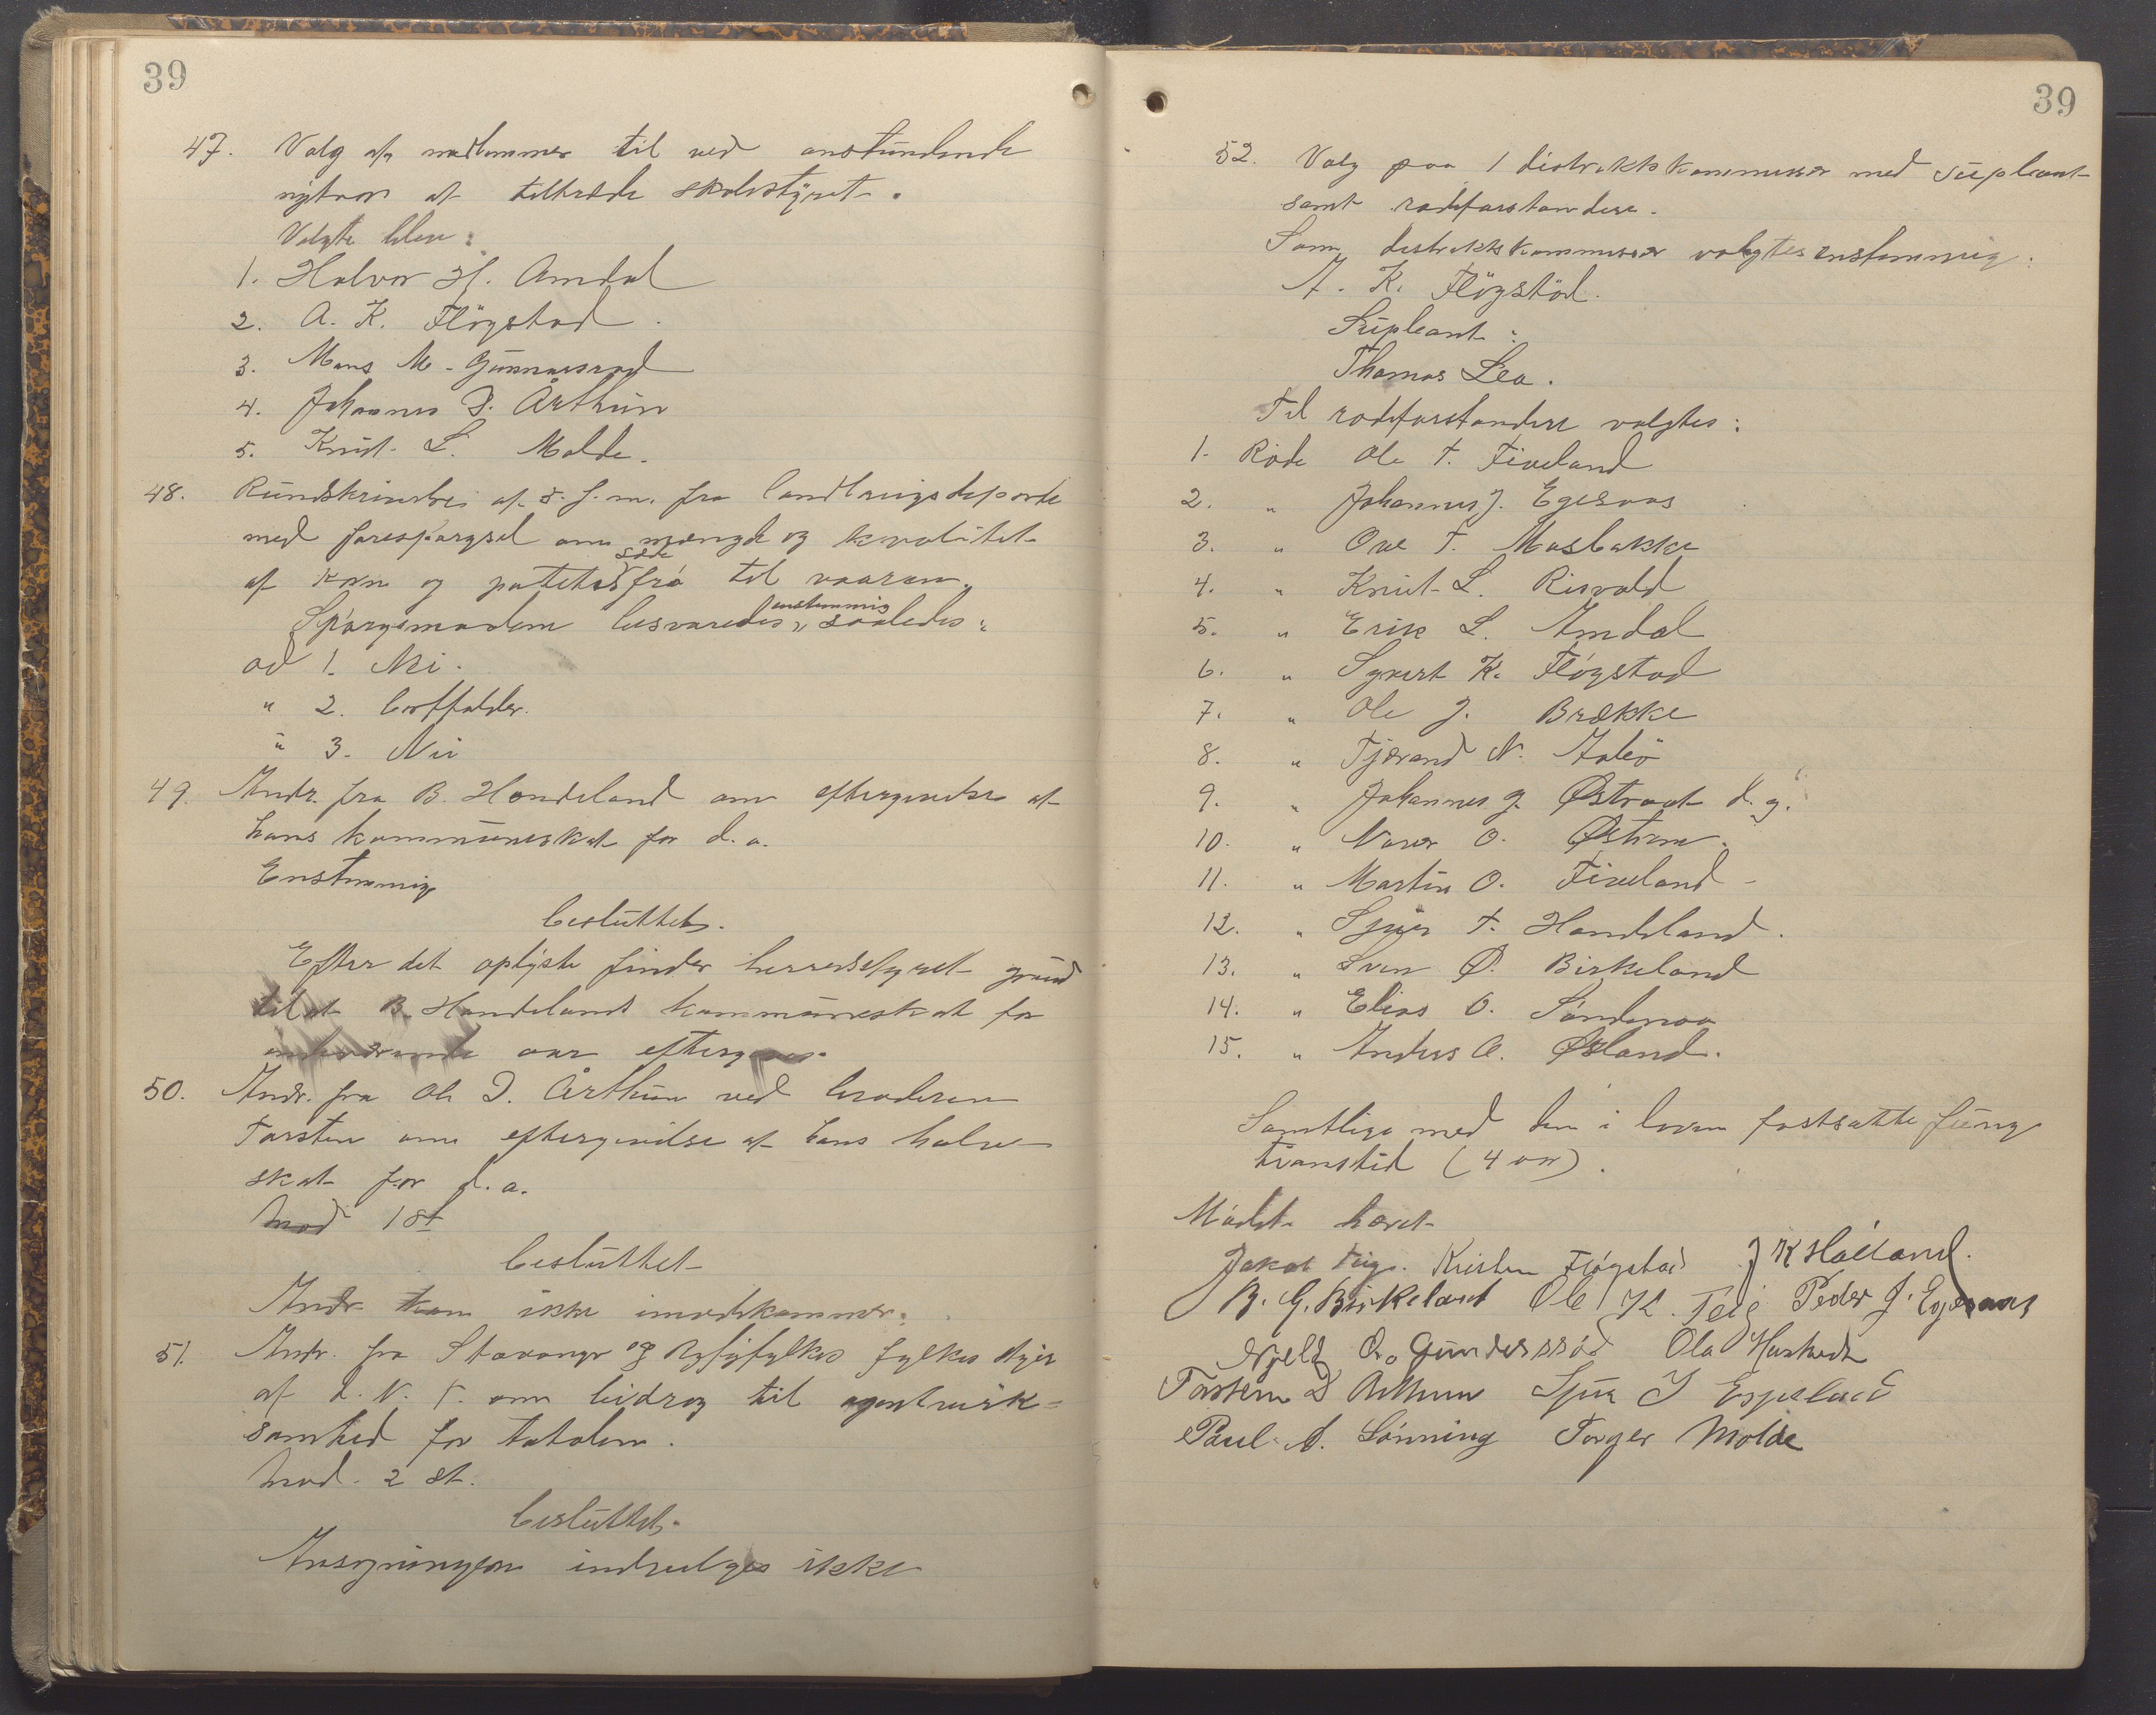 39
47. Valg af medlemmer til ved anstundende
nytaar at tiltræde skolestyret.
Valgte blev:
1. Halvor H. Amdal
2. A. K. Fløgstad.
3. Mons M. Gunnarsrod
4. Johannes D. Årthun
5. Knut L. Molde.
48. Rundskrivelse af d. f. m. fra landbrugsdeparte
med forespørgsel om mængde og kvalitet
af korn og potetes sæd frø til vaaren.
Spørgsmaalene besvaredes enstemmig saaledes:
ad 1. Nei.
" 2. bortfalder.
" 3. Nei
49. Andr. fra B. Handeland om eftergivelse af
hans kommuneskat for d. a.
Enstemmig
besluttet.
Efter det oplyste finder herredsstyret grund
til at B. Handelands kommuneskat for
indeværende aar eftergives.
50. Andr. fra Ole D. Årthun ved broderen
Torsten om eftergivelse af hans halve
skat for d. a.
Mod 1 st
besluttet
Andr. kan ikke imødekommes.
51. Andr. fra Stavanger og Ryfylkes fylkes styre
af D. N. T. om bidrag til agentvirk=
somhed for totalen.
Mod. 2 st.
besluttet.
Ansøgningen indvilges ikke
39
52. Valg paa 1 distriktskommissær med supleant
samt rodeforstandere.
Som distriktskommissær valgtes enstemmig:
A. K. Fløgstad.
Supleant:
Thomas Lea.
Til rodeforstandere valgtes:
1. Rode Ole T. Fiveland
2. " Johannes J. Egesaas
3. " Ove T. Mosbakke
4. " Knut L. Risvold
5. " Erik L. Amdal
6. " Syvert K. Fløgstad
7. " Ole J. Brække
8. " Tjerand N.
9. " Johannes J. Østraat d. y.
10. " O. Østrem.
11. " Martin O. Fiveland
12. " Sjur T. Handeland.
13. " Sven Ø. Birkeland
14. " Elias O. Søndenaa
15. " Anders A. Øsland.
Samtlige med den i loven fastsatte fung
tionstid (4 aar).
Mødet hævet
Jakob Kristen Fløgstad J K Hålland.
B. G. Birkeland Ole K. Teig Peder J. Egesaas
Kjell O. Gunderssød Ola Hustvedt
Torsten D Arthun Sjur J Espeland
Paul A. Lønning Torger Molde